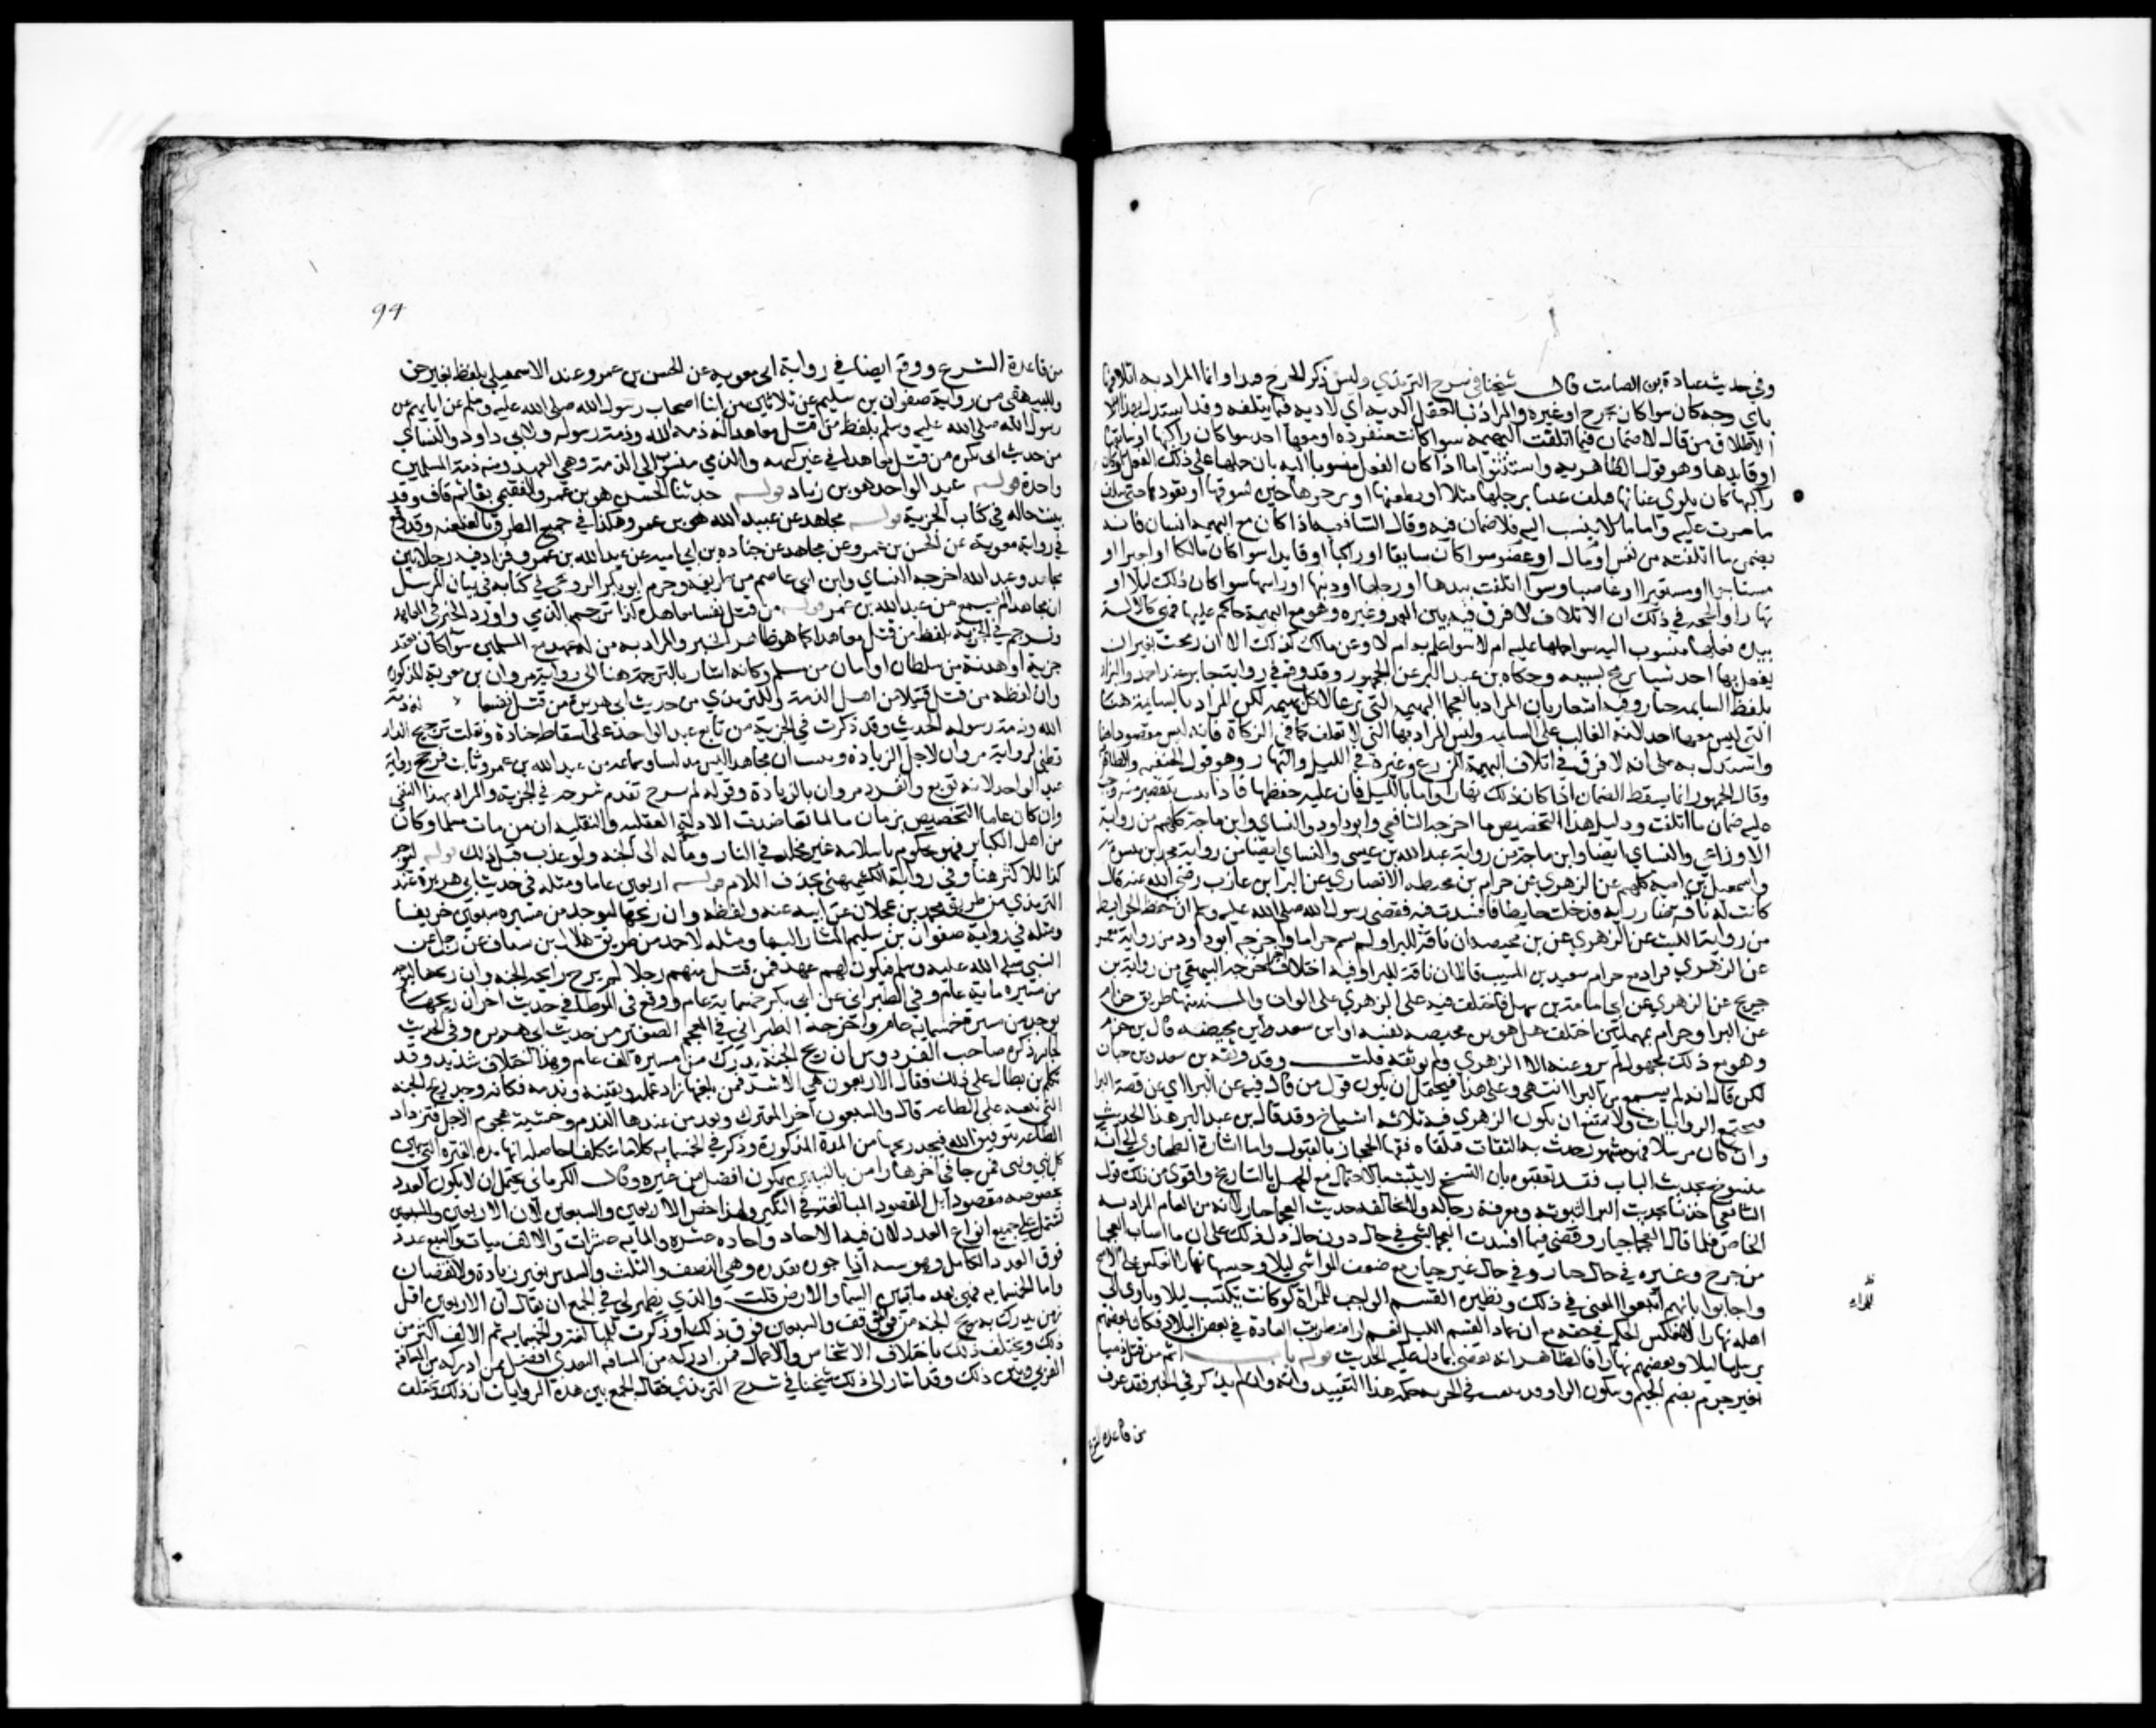 وفي حديث عبادة بن الصامت قال شيخنا في شرح الترمذي وليس ذكر الجرح قيدا وانما المراد به اتلافها
باي وجه كان سوا كان بجرح او غيره والمراد بالعقل الدية اي لا دية فيما يتلفه وقد استدل بهذا
الاطلاق من قال لا ضمان فيما اتلفت البهيمة سوا كانت منفرده او معها احد سوا كان راكبها او سائقها
او قايدها وهو قول الظاهرية واستثنوا ما اذا كان الفعل منسوبا اليه بان حملها على ذلك الفعل
راكبها كان يلوي عنانها فتتلف شيئا برجلها مثلا او يطعنها او يزجرها حين يسوقها او يقودها حتى تتلف
ما مرت عليه واما ما لا ينسب اليه فلا ضمان فيه وقال الشافعيه اذا كان مع البهيمه انسان فانه
يضمن ما اتلفته من نفس او مال او عضو سوا كان سايقا او راكبا او قايدا سوا كان مالكا او اجيرا او
مستاجرا او مستعيرا او غاصبا وسوا اتلفت بيدها او رجلها او ذنبها او راسها سوا كان ذلك ليلا او
نهارا والحجه في ذلك ان الاتلاف لا فرق فيه بين العمد وغيره وهو مع البهيمة حاكم عليها فهي كالالة
بيده ففعلها منسوب اليه سوا حملها عليه ام لا سوا علم به ام لا وعن مالك كذلك الا ان رمحت بغير ان
يفعل بها احد شيا ترمح بسببه وحكاه بن عبد البر عن الجمهور وقد وقع في رواية جابر عند احمد والبزار
بلفظ السايمه جبار وفيه اشعار بان المراد بالعجما البهيمه التي ترعا لا كل بهيمه لكن المراد بالسايمة هنا
التي ليس معها احد لانه الغالب على السايمه وليس المراد بها التي لا تعلف كما في الزكاة فانه ليس مقصودا هنا
واستدل به على انه لا فرق في اتلاف البهيمة للزرع وغيره في الليل والنهار وهو قول الحنفيه والظاهر
وقال الجمهور انما يسقط الضمان اذا كان ذلك نهارا واما بالليل فان عليه حفظها فاذا اتلفت بتقصير منه وجب
عليه ضمان ما اتلفت ودليل هذا التخصيص ما اخرجه الشافعي وابو داود والنساي وابن ماجة كلهم من رواية
الاوزاعي والنساي ايضا وابن ماجة من رواية عبد الله بن عيسى والنساي ايضا من رواية محمد بن ميسرة
واسمعيل بن امية كلهم عن الزهري عن حرام بن محيصه الانصاري عن البرا بن عازب رضي الله عنه قال
كانت له ناقة ضاريه فدخلت حايطا فافسدت فيه فقضى رسول الله صلى الله عليه وسلم ان حفظ الحوايط
من رواية الليث عن الزهري عن بن محيصه ان ناقة للبرا ولم يسم حراما واخرجه ابو داود من رواية معمر
عن الزهري فزاد مع حرام سعيد بن المسيب قالا ان ناقة للبرا وفيه اختلاف اخر اخرجه البيهقي من رواية بن
جريج عن الزهري عن ابي امامة بن سهل فاختلف فيه على الزهري على الوان والمسند منها طريق حرام
عن البرا وحرام بمهملتين اختلف هل هو بن محيصه نفسه او ابن سعد بن محيصه قال بن حزم
وهو مع ذلك مجهول لم يرو عنه الا الزهري ولم يوثقه قلت وقد وثقه بن سعد وبن حبان
لكن قال انه لم يسمع من البرا انتهى وعلى هذا فيحتمل ان يكون قول من قال فيه عن البرا اي عن قصة البرا
فتجتمع الروايات ولا يمتنع ان يكون للزهري فيه ثلاثه اشياخ وقد قال بن عبد البر هذا الحديث
وان كان مرسلا فهو مشهور حدث به الثقات وتلقاه فقها الحجاز بالقبول واما اشارة الطحاوي الى انه
منسوخ بحديث الباب فقد تعقبوه بان النسخ لا يثبت بالاحتمال مع الجهل بالتاريخ واقوى من ذلك قول
الشافعي اخذنا بحديث البرا لثبوته ومعرفة رجاله ولا يخالفه حديث العجما جبار لانه من العام المراد به
الخاص فلما قال العجما جبار وقضى فيما افسدت العجما بشي في حال دون حال دل ذلك على ان ما اصابت العجما
من جرح وغيره في حال جبار وفي حال غير جبار
واجابوا بانهم اتبعوا المعنى في ذلك ونظيره القسم الواجب للمراة لو كانت يكتسب ليلا وياوي الى
اهله نهارا لانعكس الحكم في حقه مع ان عماد القسم الليل نعم لو اضطربت العادة في بعض البلاد فكان بعضهم
يرسلها ليلا وبعضهم نهارا فالظاهر انه يقضى بما دل عليه الحديث قوله باب اثم من قتل ذميا
بغير جرم بضم الجيم وسكون الرا وقد بينت في الجزيه حكمة هذا التقييد وانه وان لم يذكر في الخبر فقد عرف
من قاعدة الشرع
94
من قاعدة الشرع ووقع ايضا في رواية ابي معوية عن الحسن بن عمرو عند الاسمعيلي بلفظ بغير حق
وللبيهقي من رواية صفوان بن سليم عن ثلاثين من ابنا اصحاب رسول الله صلى الله عليه وسلم عن ابايهم عن
رسول الله صلى الله عليه وسلم بلفظ من قتل معاهدا له ذمة الله وذمة رسوله ولابي داود والنساي
من حديث ابي بكرة من قتل معاهدا في غير كنهه والذمي منسوب الى الذمة وهي العهد ومنه ذمة المسلمين
واحدة قوله عبد الواحد هو بن زياد قوله حدثنا الحسن هو بن عمرو الفقيمي بفا ثم قاف وقد
بينت حاله في كتاب الجزية قوله مجاهد عن عبد الله هو بن عمرو وهكذا في جميع الطرق بالعنعنه وقد وقع
في رواية مروان بن معوية عن الحسن بن عمرو عن مجاهد عن جناده بن ابي امية عن عبد الله بن عمرو فزاد فيه رجلا بين
مجاهد وعبد الله اخرجه النساي وابن ابي عاصم من طريقه وجزم ابو بكر البرديجي في كتابه في بيان المرسل
ان مجاهدا لم يسمع من عبد الله بن عمرو قوله من قتل نفسا معاهدا كذا ترجم بالذمي واورد الخبر في المعاهد
وترجم في الجزية بلفظ من قتل معاهدا كما هو ظاهر الخبر والمراد به من له عهد مع المسلمين سوا كان بعقد
جزية او هدنة من سلطان او امان من مسلم وكانه اشار بالترجمة هنا الى رواية مروان بن معوية المذكورة
وان لفظه من قتل قتيلا من اهل الذمة وللترمذي من حديث ابي هريرة من قتل نفسا له ذمة
الله وذمة رسوله الحديث وقد ذكرت في الجزية من تابع عبد الواحد على اسقاط جنادة ونقلت ترجيح الدار
قطني لرواية مروان لاجل الزيادة وبينت ان مجاهدا ليس مدلسا وسماعه من عبد الله بن عمرو ثابت فترجح رواية
عبد الواحد لانه توبع وانفرد مروان بالزيادة وقوله لم يرح تقدم شرحه في الجزية والمراد بهذا النفي
وان كان عاما التخصيص بزمان ما لما تعاضدت الادلة العقليه والنقليه ان من مات مسلما وكان
من اهل الكباير فهو محكوم باسلامه غير مخلد في النار ومآله الى الجنه ولو عذب قبل ذلك قوله ليوجد
كذا للاكثر هنا وفي رواية الكشميهني بحذف اللام قوله اربعين عاما ومثله في حديث ابي هريرة عند
الترمذي من طريق محمد بن عجلان عن ابيه عنه ولفظه وان ريحها ليوجد من مسيره سبعين خريفا
ومثله في رواية صفوان بن سليم المشار اليها ومثله لاحمد من طريق هلال بن يساف عن رجل عن
النبي صلى الله عليه وسلم سيكون لهم عهد فمن قتل منهم رجلا لم يرح رايحة الجنه وان ريحها ليوجد
من مسيره ماية عام وفي الطبراني عن ابي بكرة خمسماية عام ووقع في الموطا في حديث اخر ان ريحها
يوجد من مسيرة خمسماية عام واخرجه الطبراني في المعجم الصغير من حديث ابي هريرة وفي حديث
جابر ذكره صاحب الفردوس ان ريح الجنة يدرك من مسيرة الف عام وهذا اختلاف شديد وقد
تكلم بن بطال على ذلك فقال الاربعون هي الاشد فمن بلغها زاد عمله ويقينه وندمه فكانه وجد ريح الجنه
التي تبعثه على الطاعه قال والسبعون اخر المعترك ويعرض عندها الندم وخشية هجوم الاجل فتزداد
الطاعه بتوفيق الله فيجد ريحها من المدة المذكورة وذكر في الخمسمايه كلاما متكلفا حاصله انها مدة الفترة التي بين
كل نبي ونبي فمن جا في اخرها وامن بالنبيين يكون افضل من غيره وقال الكرماني يحتمل ان لا يكون العدد
بخصوصه مقصودا بل المقصود المبالغة في التكثير ولهذا خص الاربعين والسبعين لان الاربعين
يشتمل على جميع انواع العدد لان فيه الاحاد واحاده عشره والمايه عشرات والالف ميات والسبع عدد
فوق العدد الكامل وهو سته اذ اجزاوه بقدره وهي النصف والثلث والسدس بغير زيادة ولا نقصان
واما الخمسمايه فهي بعد ما بين السما والارض قلت والذي يظهر لي في الجمع ان يقال ان الاربعين اقل
زمن يدرك به ريح الجنه من في الموقف والسبعين فوق ذلك او ذكرت للمبالغة والخمسمايه ثم الالف اكثر من
ذلك ويختلف ذلك باختلاف الاشخاص والاعمال فمن ادركه من المسافه البعدى افضل ممن ادركه من المسافة
القربى وبين ذلك وقد اشار الى ذلك شيخنا في شرح الترمذي فقال الجمع بين هذه الروايات ان ذلك يختلف